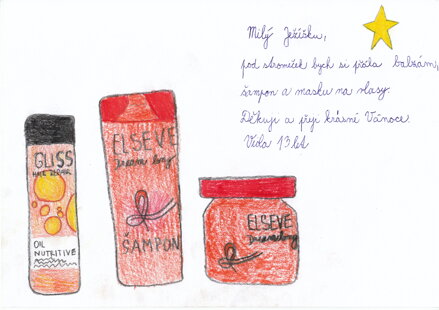 Milý Ježíšku,
pod stromeček bych si přála balzám,
šampon a masku na vlasy.
Děkuji a přeji krásné Vánoce.
13 let
GLISS
HAIR REPAIR
OIL
NUTRITIVE
ELSEVE
Dream long
ŠAMPON
ELSEVE
Dreamlong